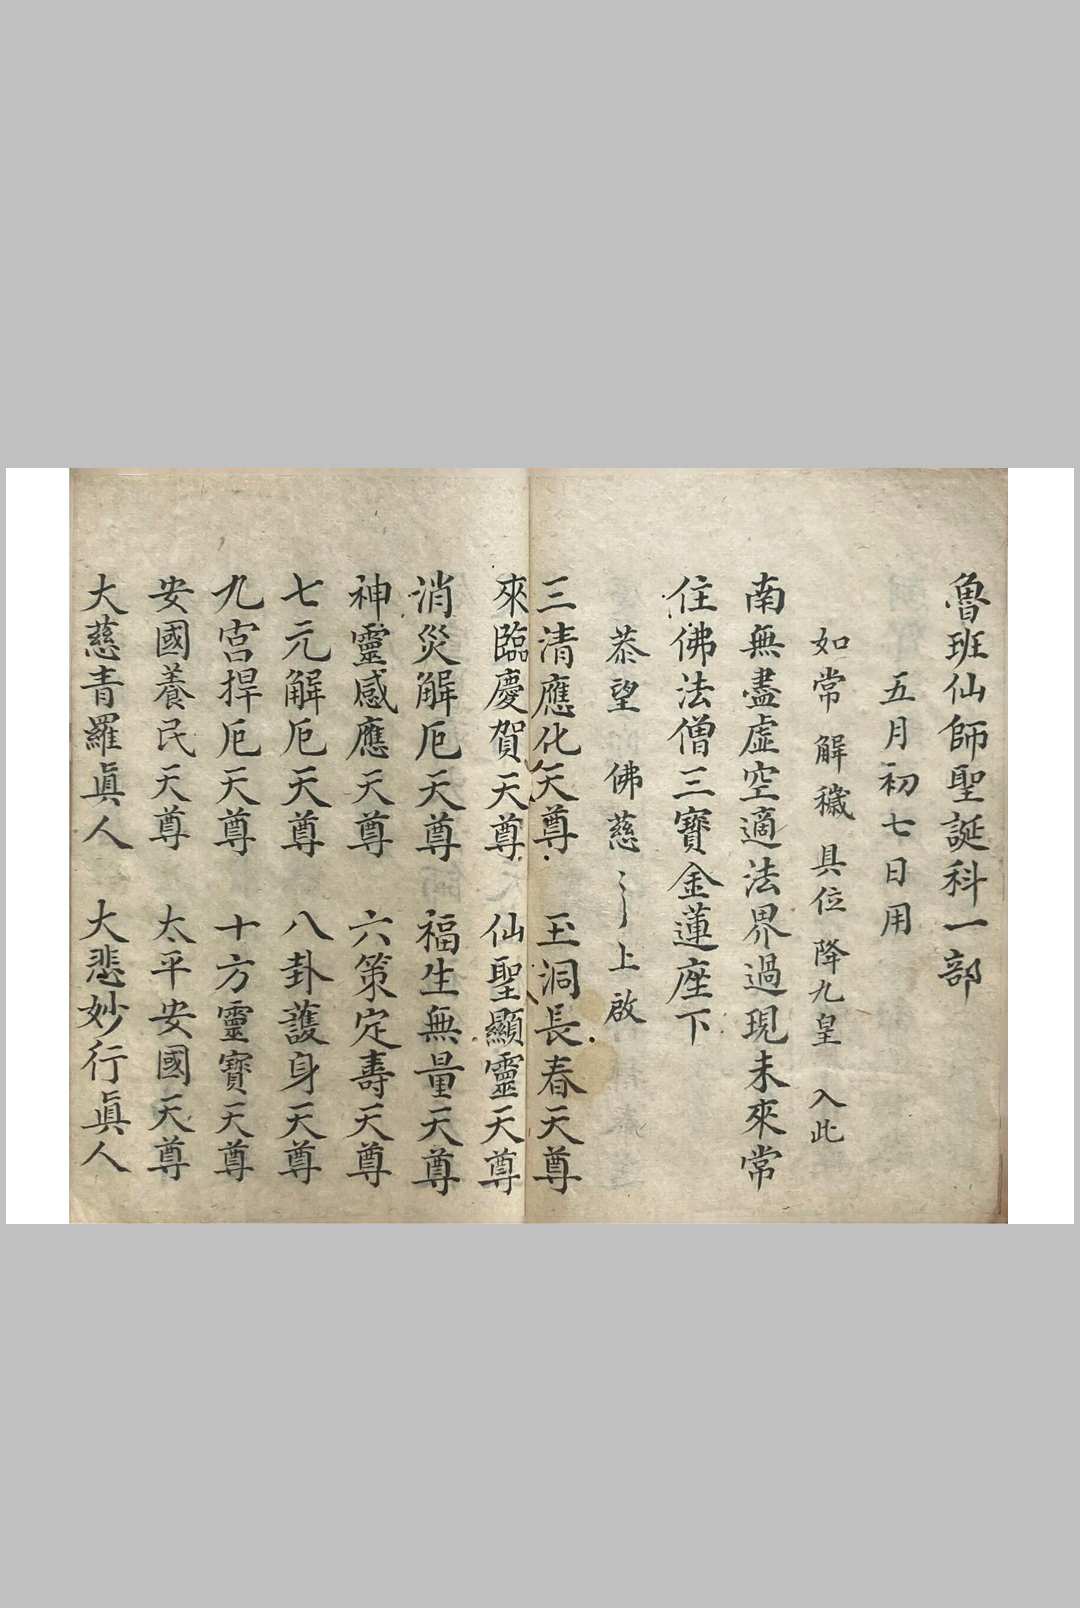 魯班仙師聖誕科一部
五月初七日用
如常 解穢 具位 降九皇 入此
南無盡虛空適法界過現未來常
住佛法僧三寶金蓮座下
恭望 佛慈 上啟
三清應化天尊 玉洞長春天尊
來臨慶賀天尊 仙聖顯靈天尊
消災解厄天尊 福生無量天尊
神靈感應天尊 六策定壽天尊
七元解厄天尊 八卦護身天尊
九宮捍厄天尊 十方靈寶天尊
安國養民天尊 太平安國天尊
大慈青羅眞人 大悲妙行眞人